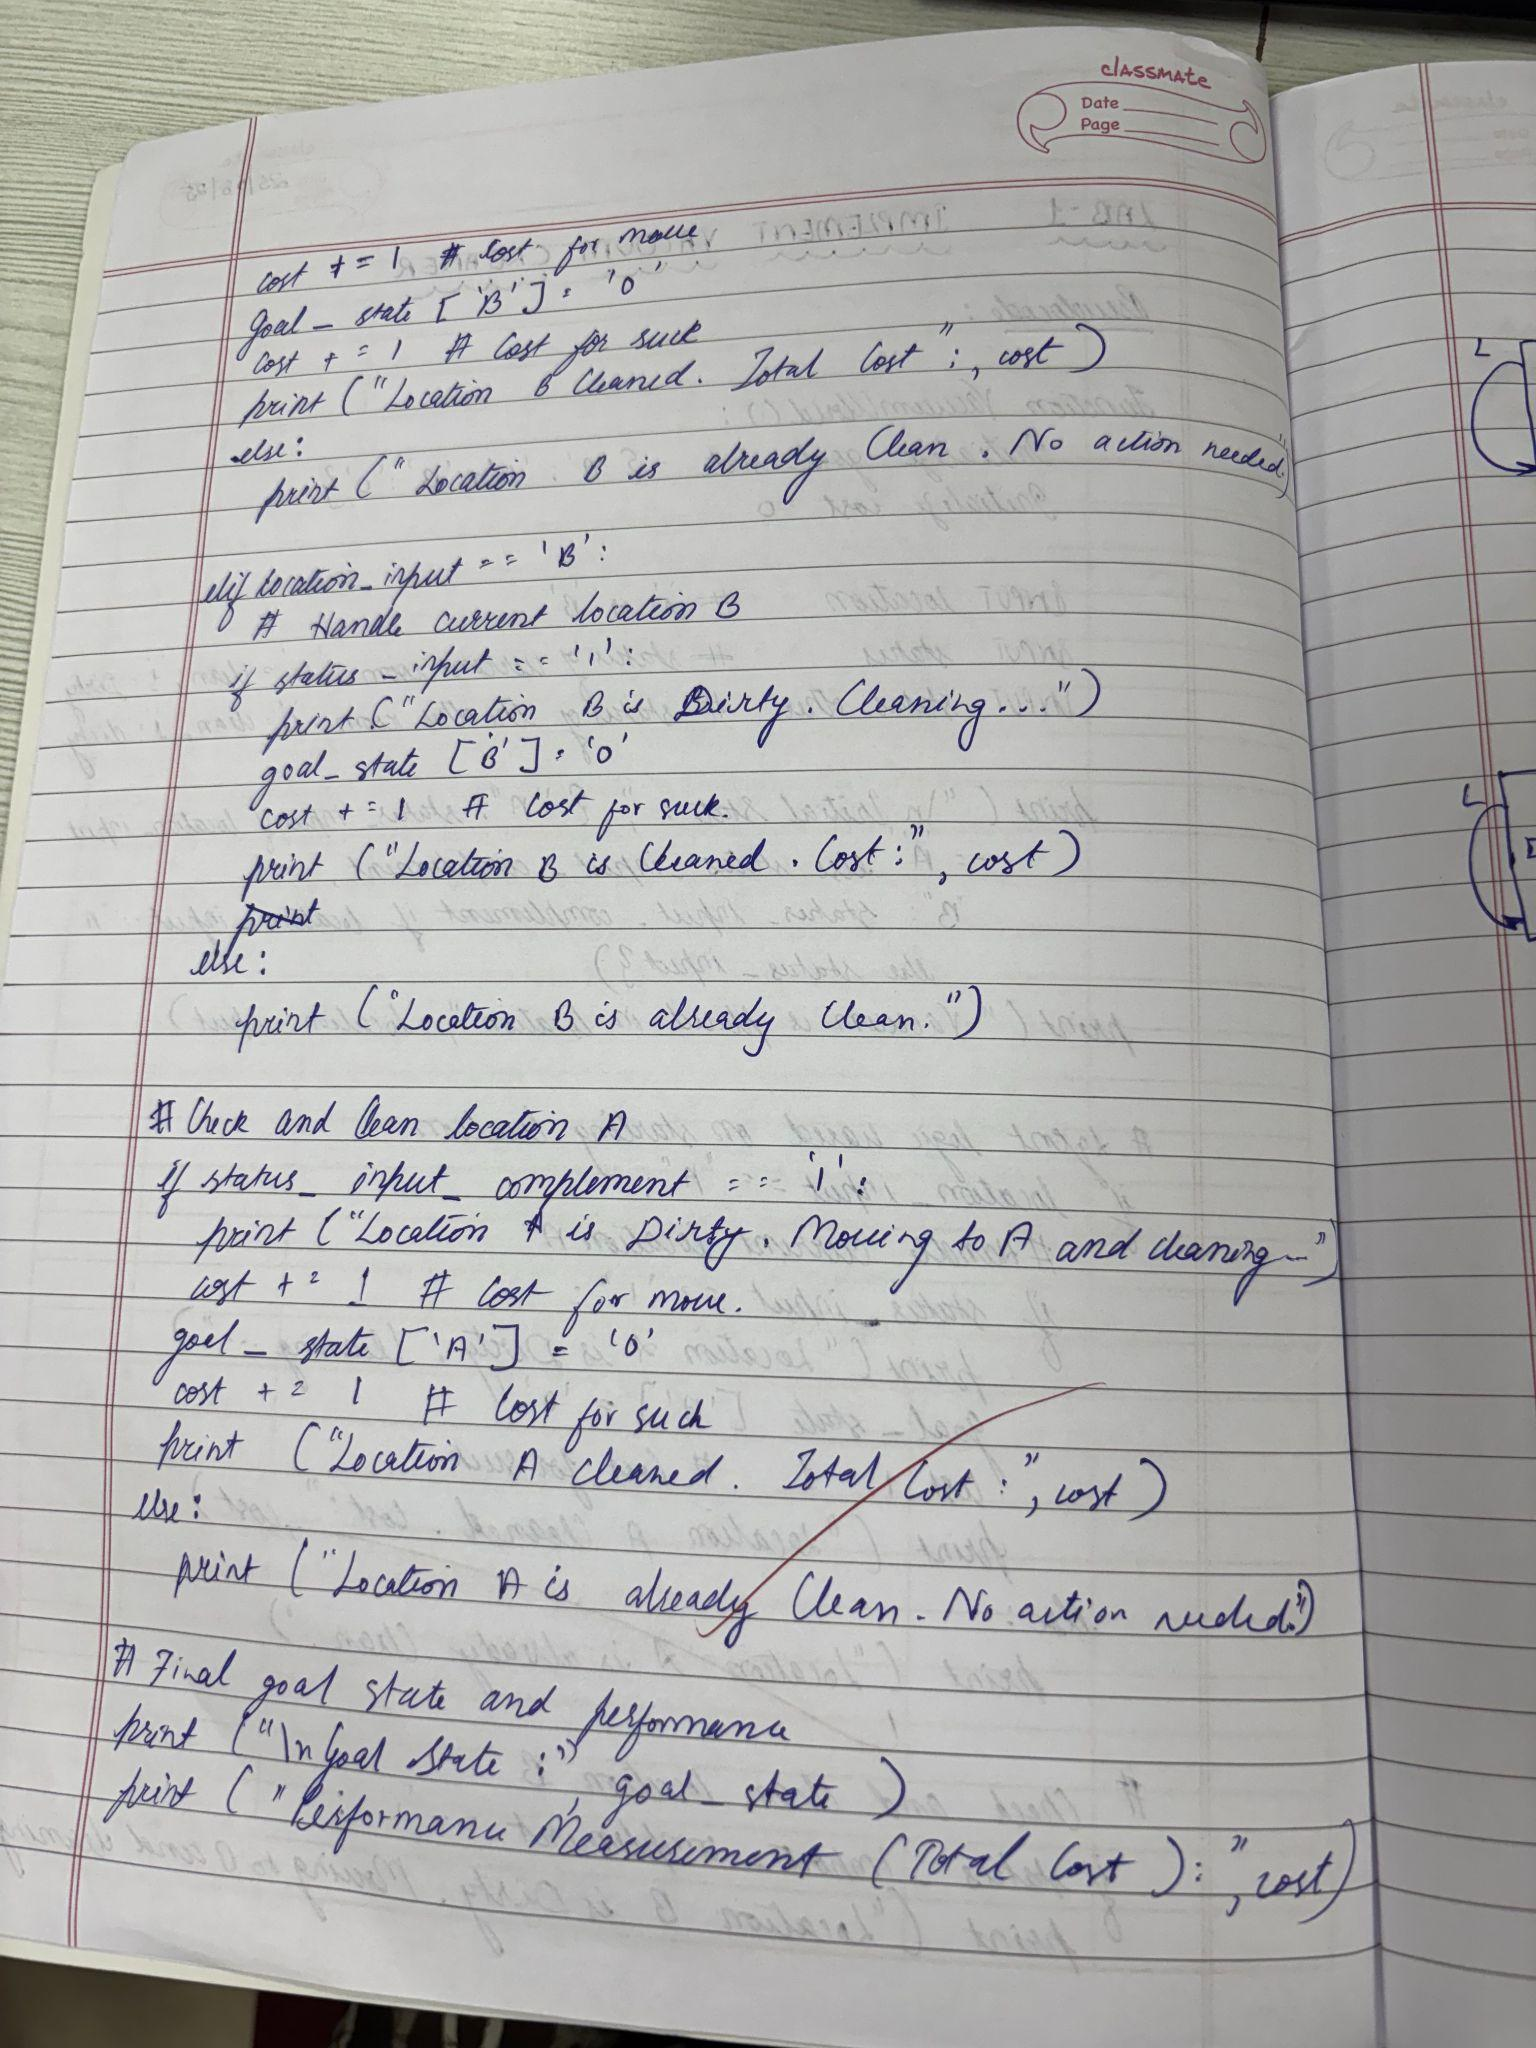 classmate
Date
Page
cost += 1 # Cost for move
goal_state ['B'] = '0'
cost += 1 # Cost for suck
print ("Location B Cleaned. Total Cost":, cost)
else:
print ("Location B is already Clean. No action needed.")
elif location_input == 'B':
# Handle current location B
if status_input == '1':
print ("Location B is Dirty. Cleaning...")
goal_state ['B'] = '0'
cost += 1 # Cost for suck.
print ("Location B is Cleaned. Cost:", cost)
print
else:
print ("Location B is already Clean.")
# Check and Clean location A
if status_input_complement == '1':
print ("Location A is Dirty. Moving to A and cleaning...")
cost += 1 # Cost for move.
goal_state ['A'] = '0'
cost += 1 # Cost for such
print ("Location A cleaned. Total Cost:", cost)
else:
print ("Location A is already Clean. No action needed.")
# Final goal state and performance
print ("\n Goal State:", goal_state)
print ("Performance Measurement (Total Cost):", cost)
L
L